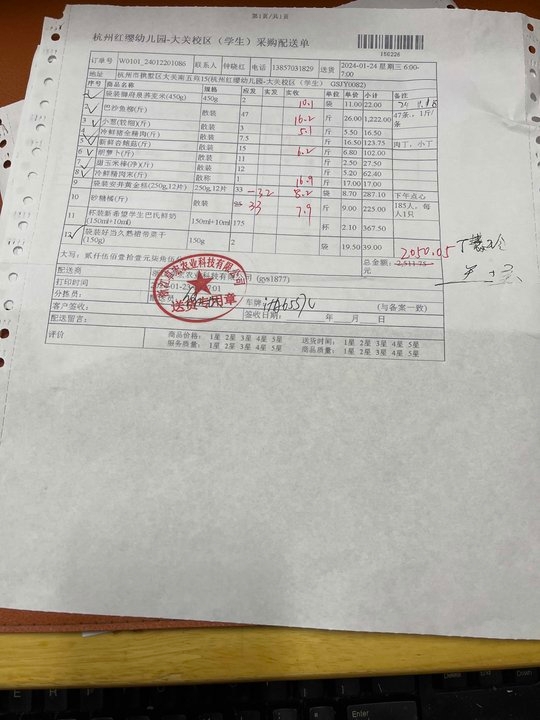 第1页/共1页
杭州红缨幼儿园-大关校区（学生）采购配送单
156226
订单号 W0101_24012201086 联系人 钟晓红 电话 13857031829 送货 2024-01-24 星期三 6:00-7:00
地址 杭州市拱墅区大关南五苑15(杭州红缨幼儿园-大关校区（学生） GSJY0082)
序号 商品名称 规格 应发 实发 实收 单位 单价 小计 备注
1 袋装御府泉荞麦米(450g) 450g 2 袋 11.00 22.00
2 巴沙鱼柳(斤) 散装 47 10.1 斤 26.00 1,222.00 47条,，1斤/条
3 小葱(软糊)(斤) 散装 3 16.2 斤 5.50 16.50
4 冷鲜猪全精肉(斤) 散装 7.5 5.1 斤 16.50 123.75 肉丁，小丁
5 新鲜杏鲍菇(斤) 散装 15 6.2 斤 6.80 102.00
6 胡萝卜(斤) 散装 11 斤 2.50 27.50
7 甜玉米棒(净)(斤) 散装 12 斤 5.20 62.40
8 冷鲜猪肉末(斤) 散称 1 16.9 斤 17.00 17.00
9 袋装安井黄金糕(250g,12片) 250g,12片 33 -32 8.2 袋 8.70 287.10 下午点心
10 砂糖橘(斤) 散装 33 7.9 斤 9.00 225.00 185人，每人1只
11 杯装新希望学生巴氏鲜奶(150ml+10ml) 150ml+10ml 175 杯 2.10 367.50
12 袋装好当久熟裙带菜干(150g) 150g 2 袋 19.50 39.00
大写：贰仟伍佰壹拾壹元柒角伍分 总金额：2,511.75元 2050.05
配送商 (gys1877)
打印时间
分拣员：
车牌
(与备案一致)
客户签收： 签收日期： 年 月 日
配送留言：
评价 商品价格： 1星 2星 3星 4星 5星 送货时间： 1星 2星 3星 4星 5星
服务质量： 1星 2星 3星 4星 5星 商品质量： 1星 2星 3星 4星 5星
农业科技有限公司
送货专用章
Enter